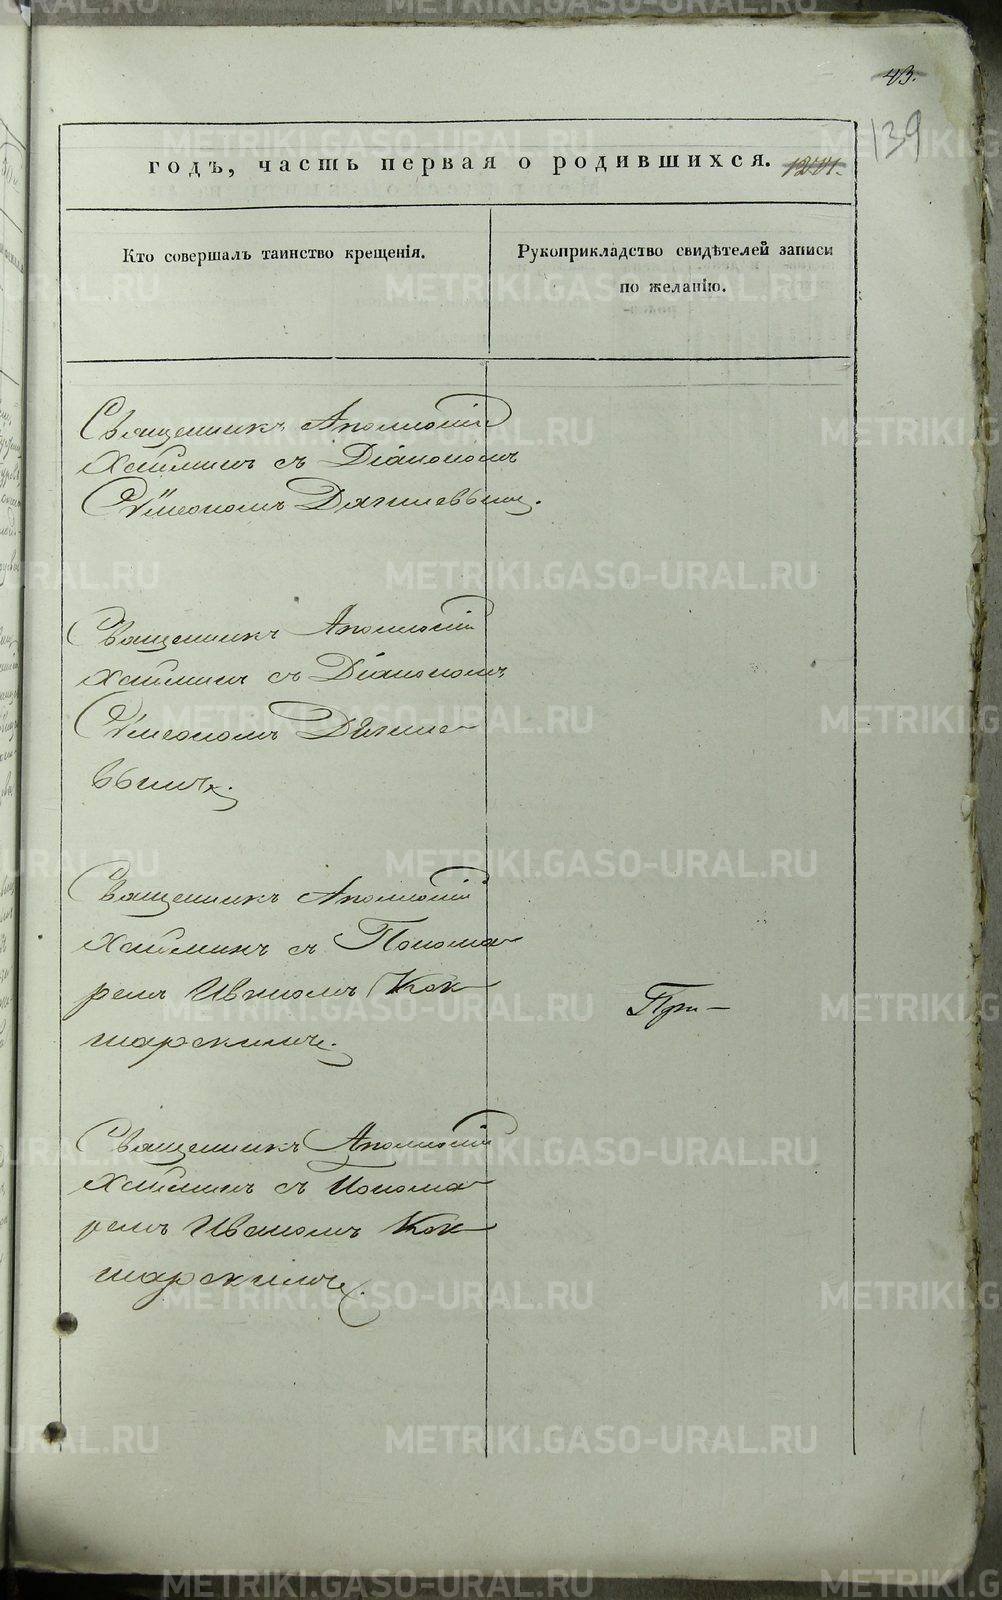 43.
139
годъ, часть первая о родившихся.
Кто совершалъ таинство крещенія.
Рукоприкладство свидѣтелей записи
по желанію.
Священникъ Аполлоній
Хаймин съ Діакономъ
Сѵмеономъ
Священникъ Аполлоній
Хаймин съ Діакономъ
Сѵмеономъ
вымъ.
Священникъ Аполлоній
Хаймин съ Понома
ремъ Иваномъ Кок
шарскимъ.
При-
Священникъ Аполлоній
Хаймин съ Понома
ремъ Иваномъ Кок
шарскимъ.
METRIKI.GASO-URAL.RU